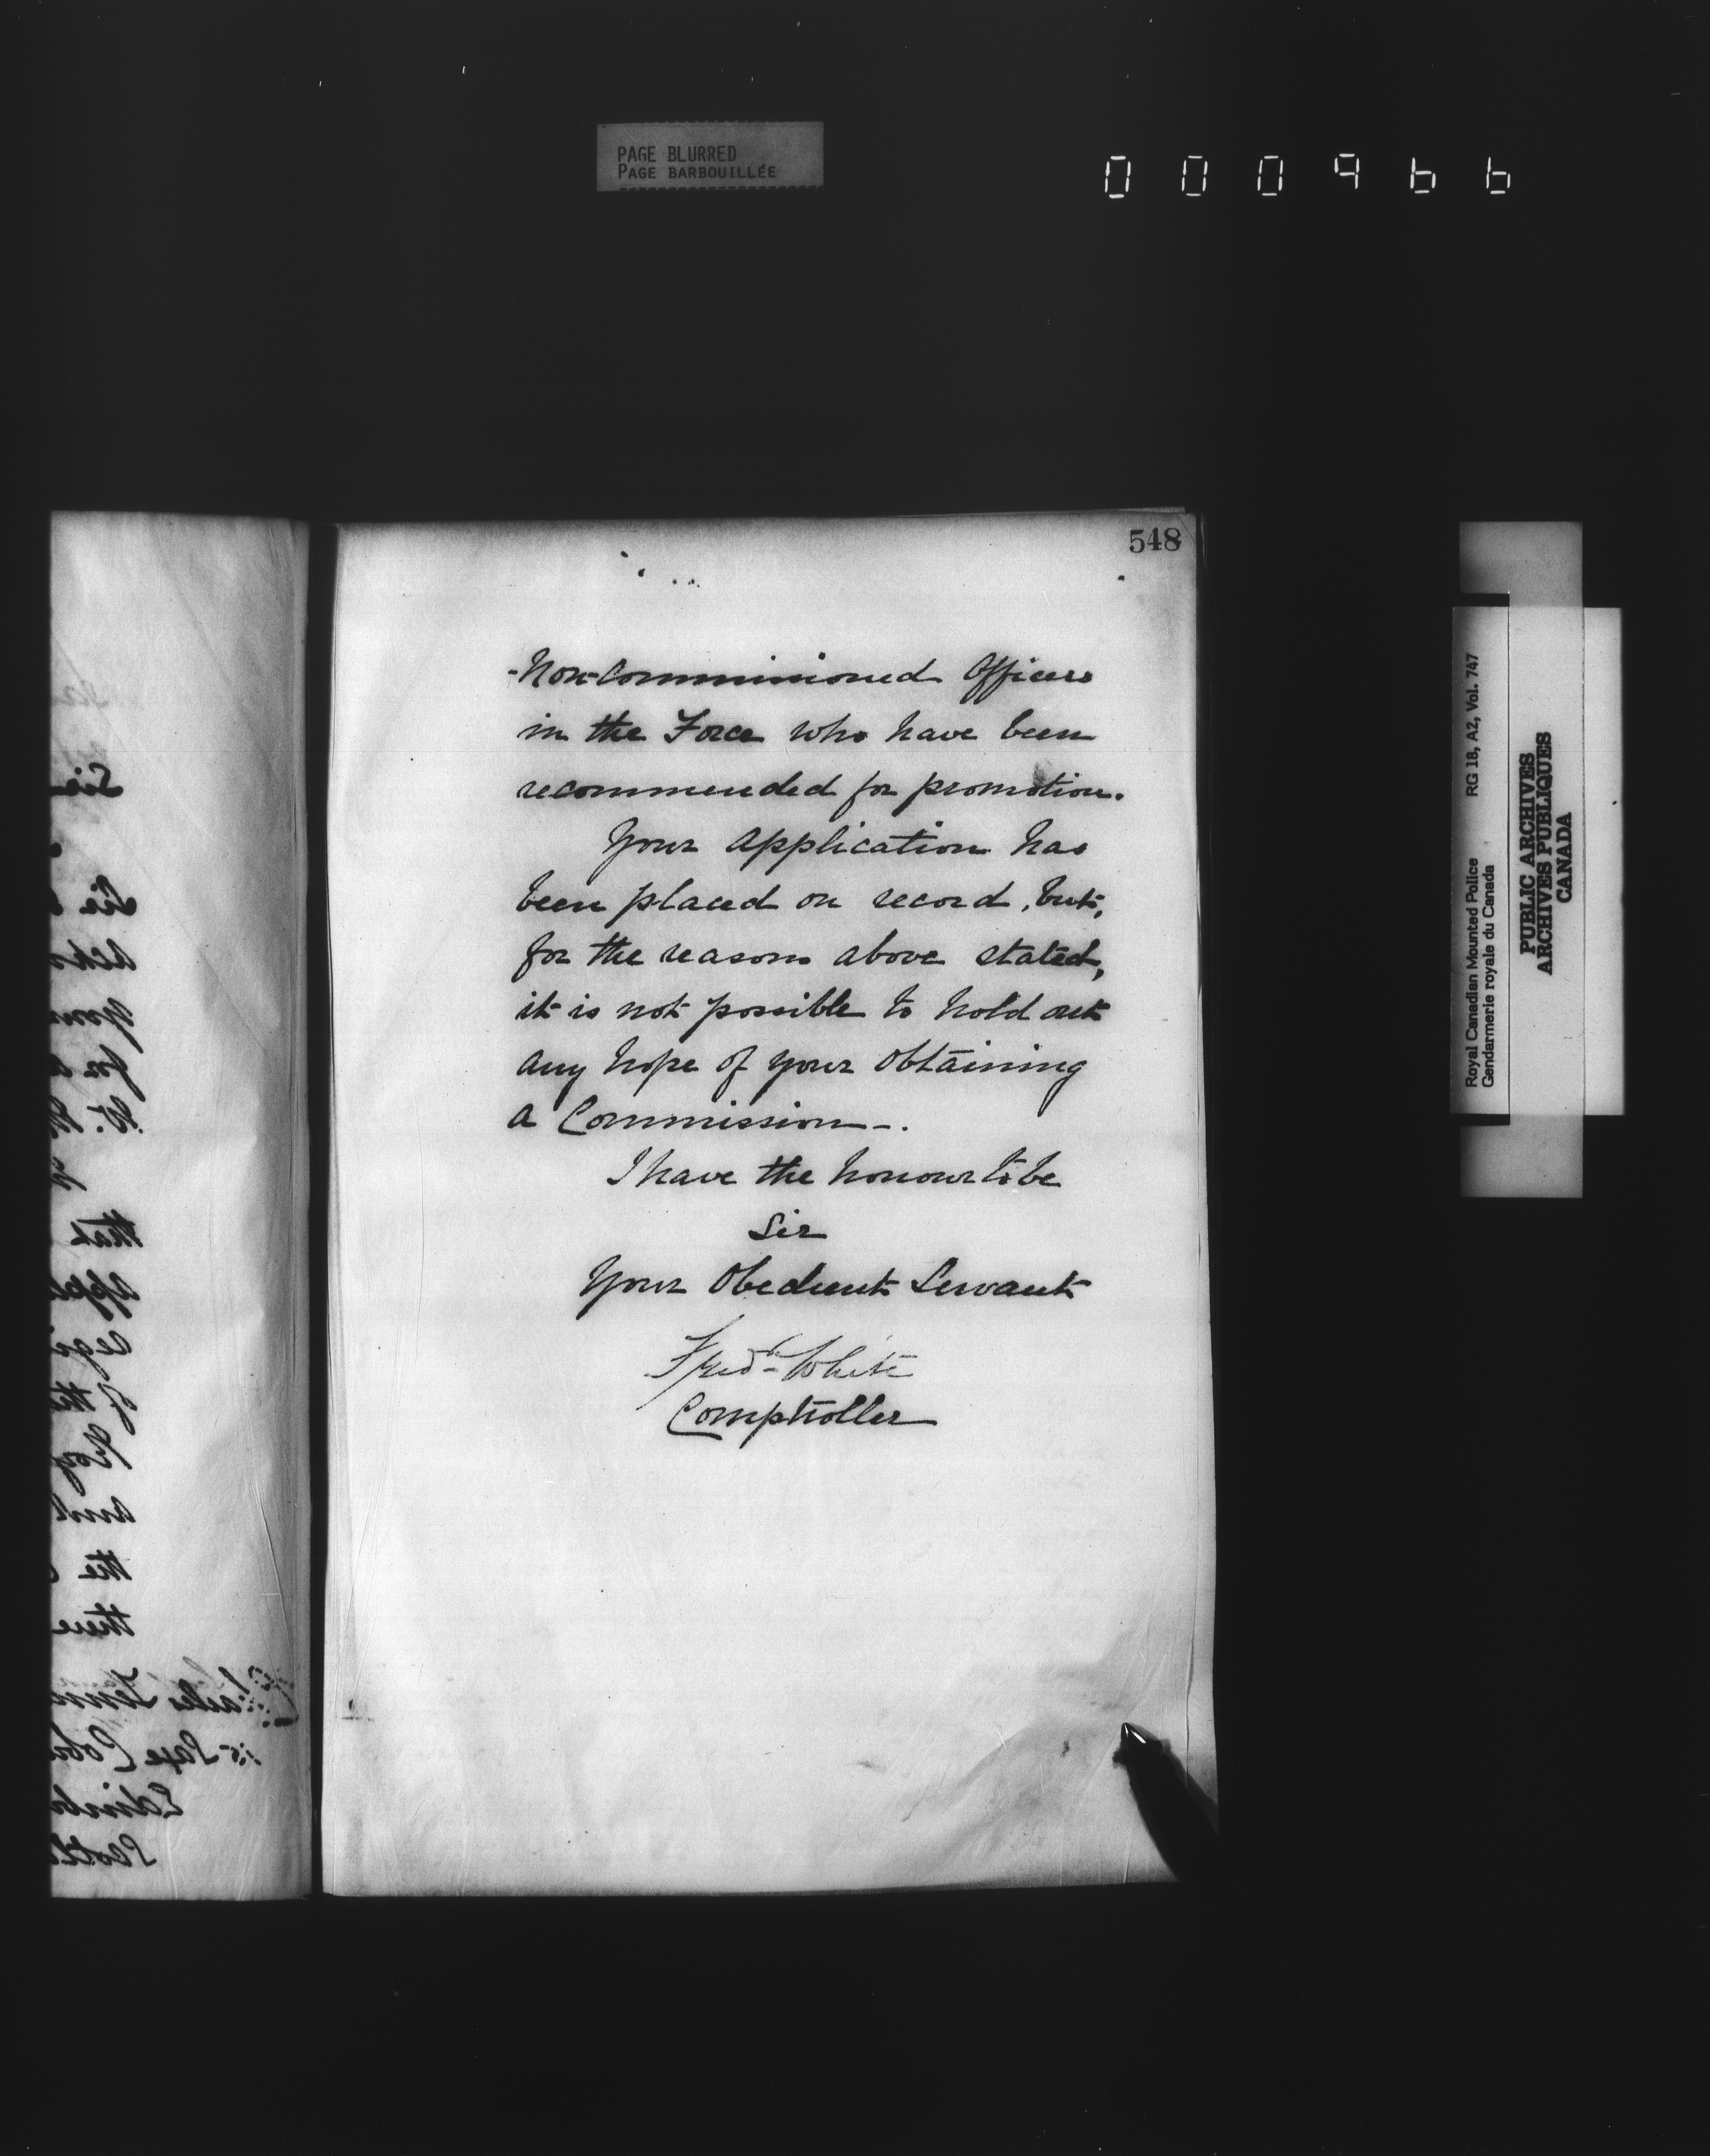 PAGE BLURRED
PAGE BARBOUILLÉE
000966
548
-Non-Commissioned Officers
in the Force who have been
recommended for promotion.
Your application has
been placed on record, but,
for the reasons above stated,
it is not possible to hold out
any hope of your obtaining
a Commission-.
I have the honour to be
Sir
Your Obedient Servant
Fred White
Comptroller
Royal Canadian Mounted Police RG 18, A2, Vol. 747
Gendarmerie royale du Canada
PUBLIC ARCHIVES
ARCHIVES PUBLIQUES
CANADA